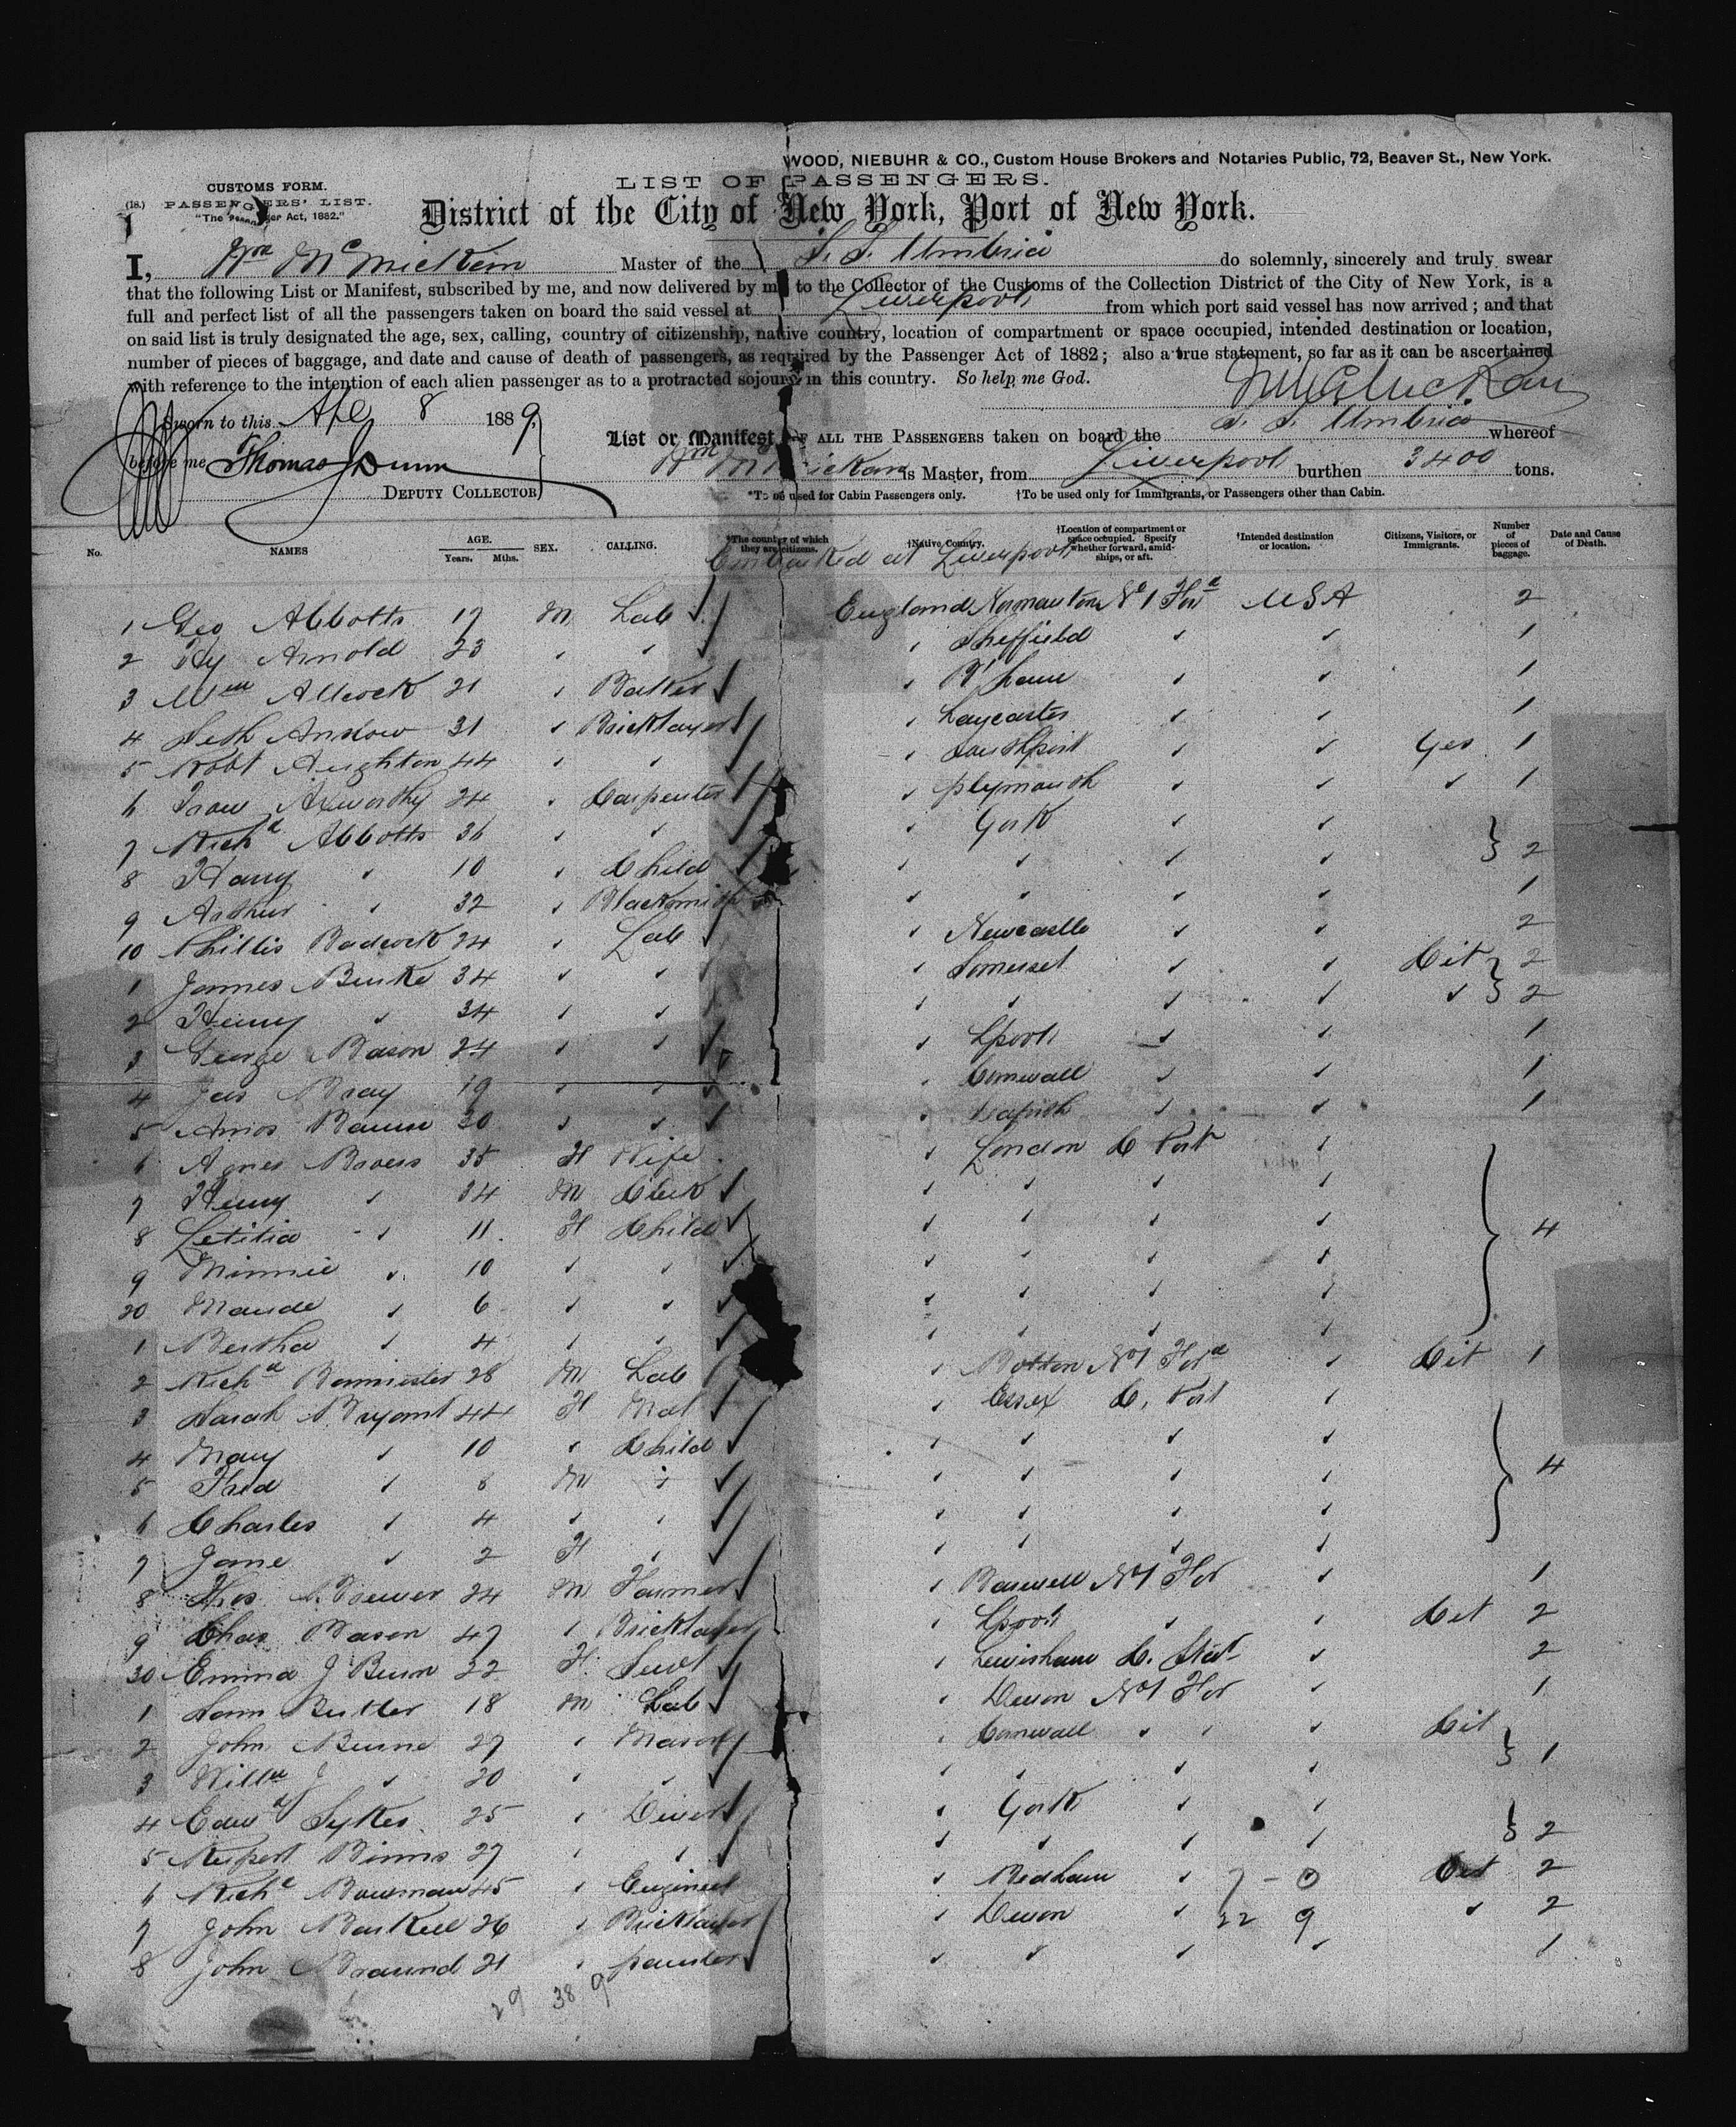 WOOD, NIEBUHR & CO., Custom House Brokers and Notaries Public, 72, Beaver St., New York.
CUSTOMS FORM.
LIST OF PASSENGERS.
(18.) PASSENGERS' LIST.
"The Passenger Act, 1882."
District of the City of New York, Port of New York.
I, Wm McMickan Master of the S. S. Umbria do solemnly, sincerely and truly swear
that the following List or Manifest, subscribed by me, and now delivered by me to the Collector of the Customs of the Collection District of the City of New York, is a
full and perfect list of all the passengers taken on board the said vessel at Liverpool from which port said vessel has now arrived ; and that
on said list is truly designated the age, sex, calling, country of citizenship, native country, location of compartment or space occupied, intended destination or location,
number of pieces of baggage, and date and cause of death of passengers, as required by the Passenger Act of 1882; also a true statement, so far as it can be ascertained
with reference to the intention of each alien passenger as to a protracted sojourn in this country. So help me God.
Wm McMickan
Sworn to this Apl 8 1889.
List or Manifest OF ALL THE PASSENGERS taken on board the S. S. Umbria whereof
before me Thomas Dunn
Wm McMickan is Master, from Liverpool burthen 3400 tons.
DEPUTY COLLECTOR
*To be used for Cabin Passengers only. †To be used only for Immigrants, or Passengers other than Cabin.
No. NAMES AGE. Years. Mths. SEX. CALLING. *The country of which they are citizens. †Native Country. †Location of compartment or space occupied. Specify whether forward, amidships, or aft. †Intended destination or location. Citizens, Visitors, or Immigrants. Number of pieces of baggage. Date and Cause of Death.
Embarked at Liverpool
1 Geo Abbotts 17 M Lab England Normanton No 1 Ford USA 2
2 Hy Arnold 23 Sheffield 1
3 Wm Allcock 21 Baker B'ham 1
4 Seth Anslow 31 Bricklayer 1
5 Robt Aughton 44 Southport Yes 1
6 Axworthy 24 Carpenter Plymouth 1
7 Richd Abbotts 36 York
8 Harry 10 Child 2
9 Arthur 32 Blacksmith 1
10 Phillis Badcock 24 Lab Newcastle 2
1 James Burke 34 Somerset Cit 2
2 Henry 34 2
3 George Bason 24 Lpool 1
4 Jas Bray 19 Cornwall 1
5 Amos 30 1
6 Agnes 35 F Wife London C Port
7 Henry 34 M Clerk
8 Letitia 11 F Child 4
9 Minnie 10
20 Maude 6
1 Bertha 4
2 Richd Bannister 28 M Lab No 1 Ford Cit 1
3 Sarah Bryant 44 F Mat Essex C. Port
4 Mary 10 Child
5 Fred 8 M 4
6 Charles 4
7 Jane 2 F
8 Thos Brewer 24 M Farmer No 1 For 1
9 Chas Bason 47 Bricklayer Lpool Cit 2
30 Emma J 22 F Servt Lewisham 2
1 Butler 18 M Lab Devon No 1 For 1
2 John 27 Mason Cornwall Cit
3 Willm J 20 1
4 Edwd Sykes 25 York
5 Rupert Binns 27 2
6 Richd Bowman 45 Engineer Cit 2
7 John Baskell 26 Bricklayer Devon 2
8 John Braund 21 painter 1
7 - 0
22 9
29 38 9